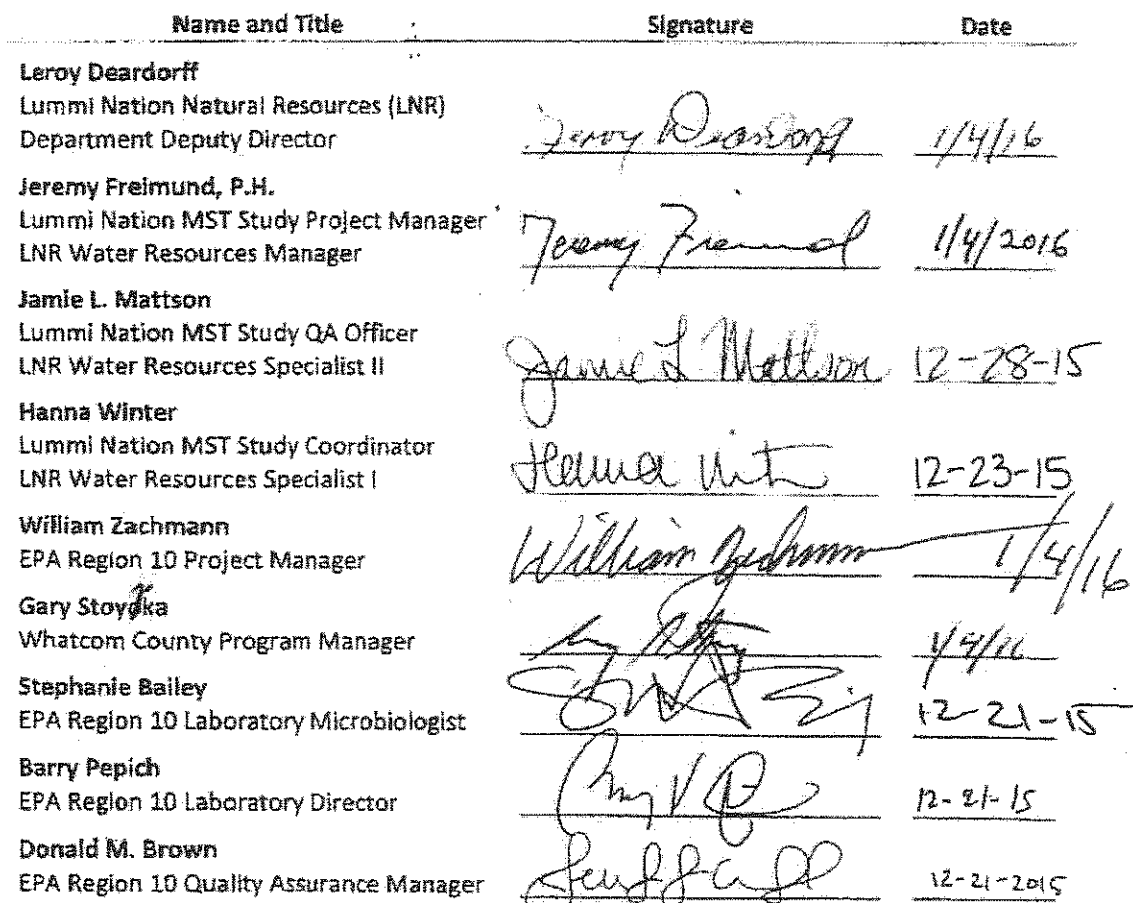 Name and Title Signature Date
Leroy Deardorff
Lummi Nation Natural Resources (LNR)
Department Deputy Director Leroy Deardorff 1/4/16
Jeremy Freimund, P.H.
Lummi Nation MST Study Project Manager
LNR Water Resources Manager Jeremy Freimund 1/4/2016
Jamie L. Mattson
Lummi Nation MST Study QA Officer
LNR Water Resources Specialist II Jamie L Mattson 12-28-15
Hanna Winter
Lummi Nation MST Study Coordinator
LNR Water Resources Specialist I 12-23-15
William Zachmann
EPA Region 10 Project Manager William Zachmann 1/4/16
Gary Stoyka
Whatcom County Program Manager
Stephanie Bailey
EPA Region 10 Laboratory Microbiologist 12-21-15
Barry Pepich
EPA Region 10 Laboratory Director 12-21-15
Donald M. Brown
EPA Region 10 Quality Assurance Manager 12-21-2015